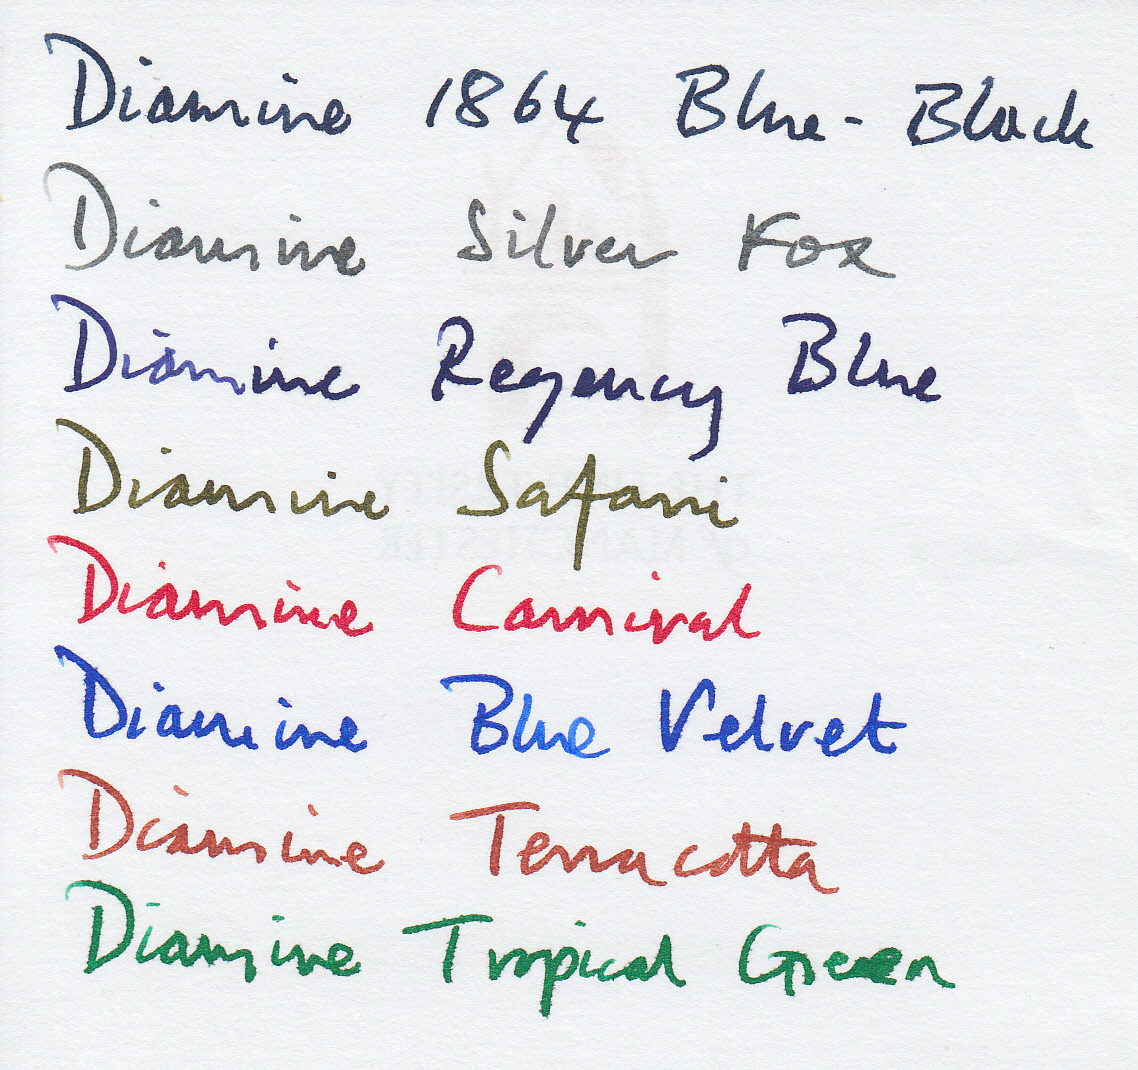 Diamine 1864 Blue-Black
Diamine Silver Fox
Diamine Regency Blue
Diamine Safari
Diamine Carnival
Diamine Blue Velvet
Diamine Terracotta
Diamine Tropical Green